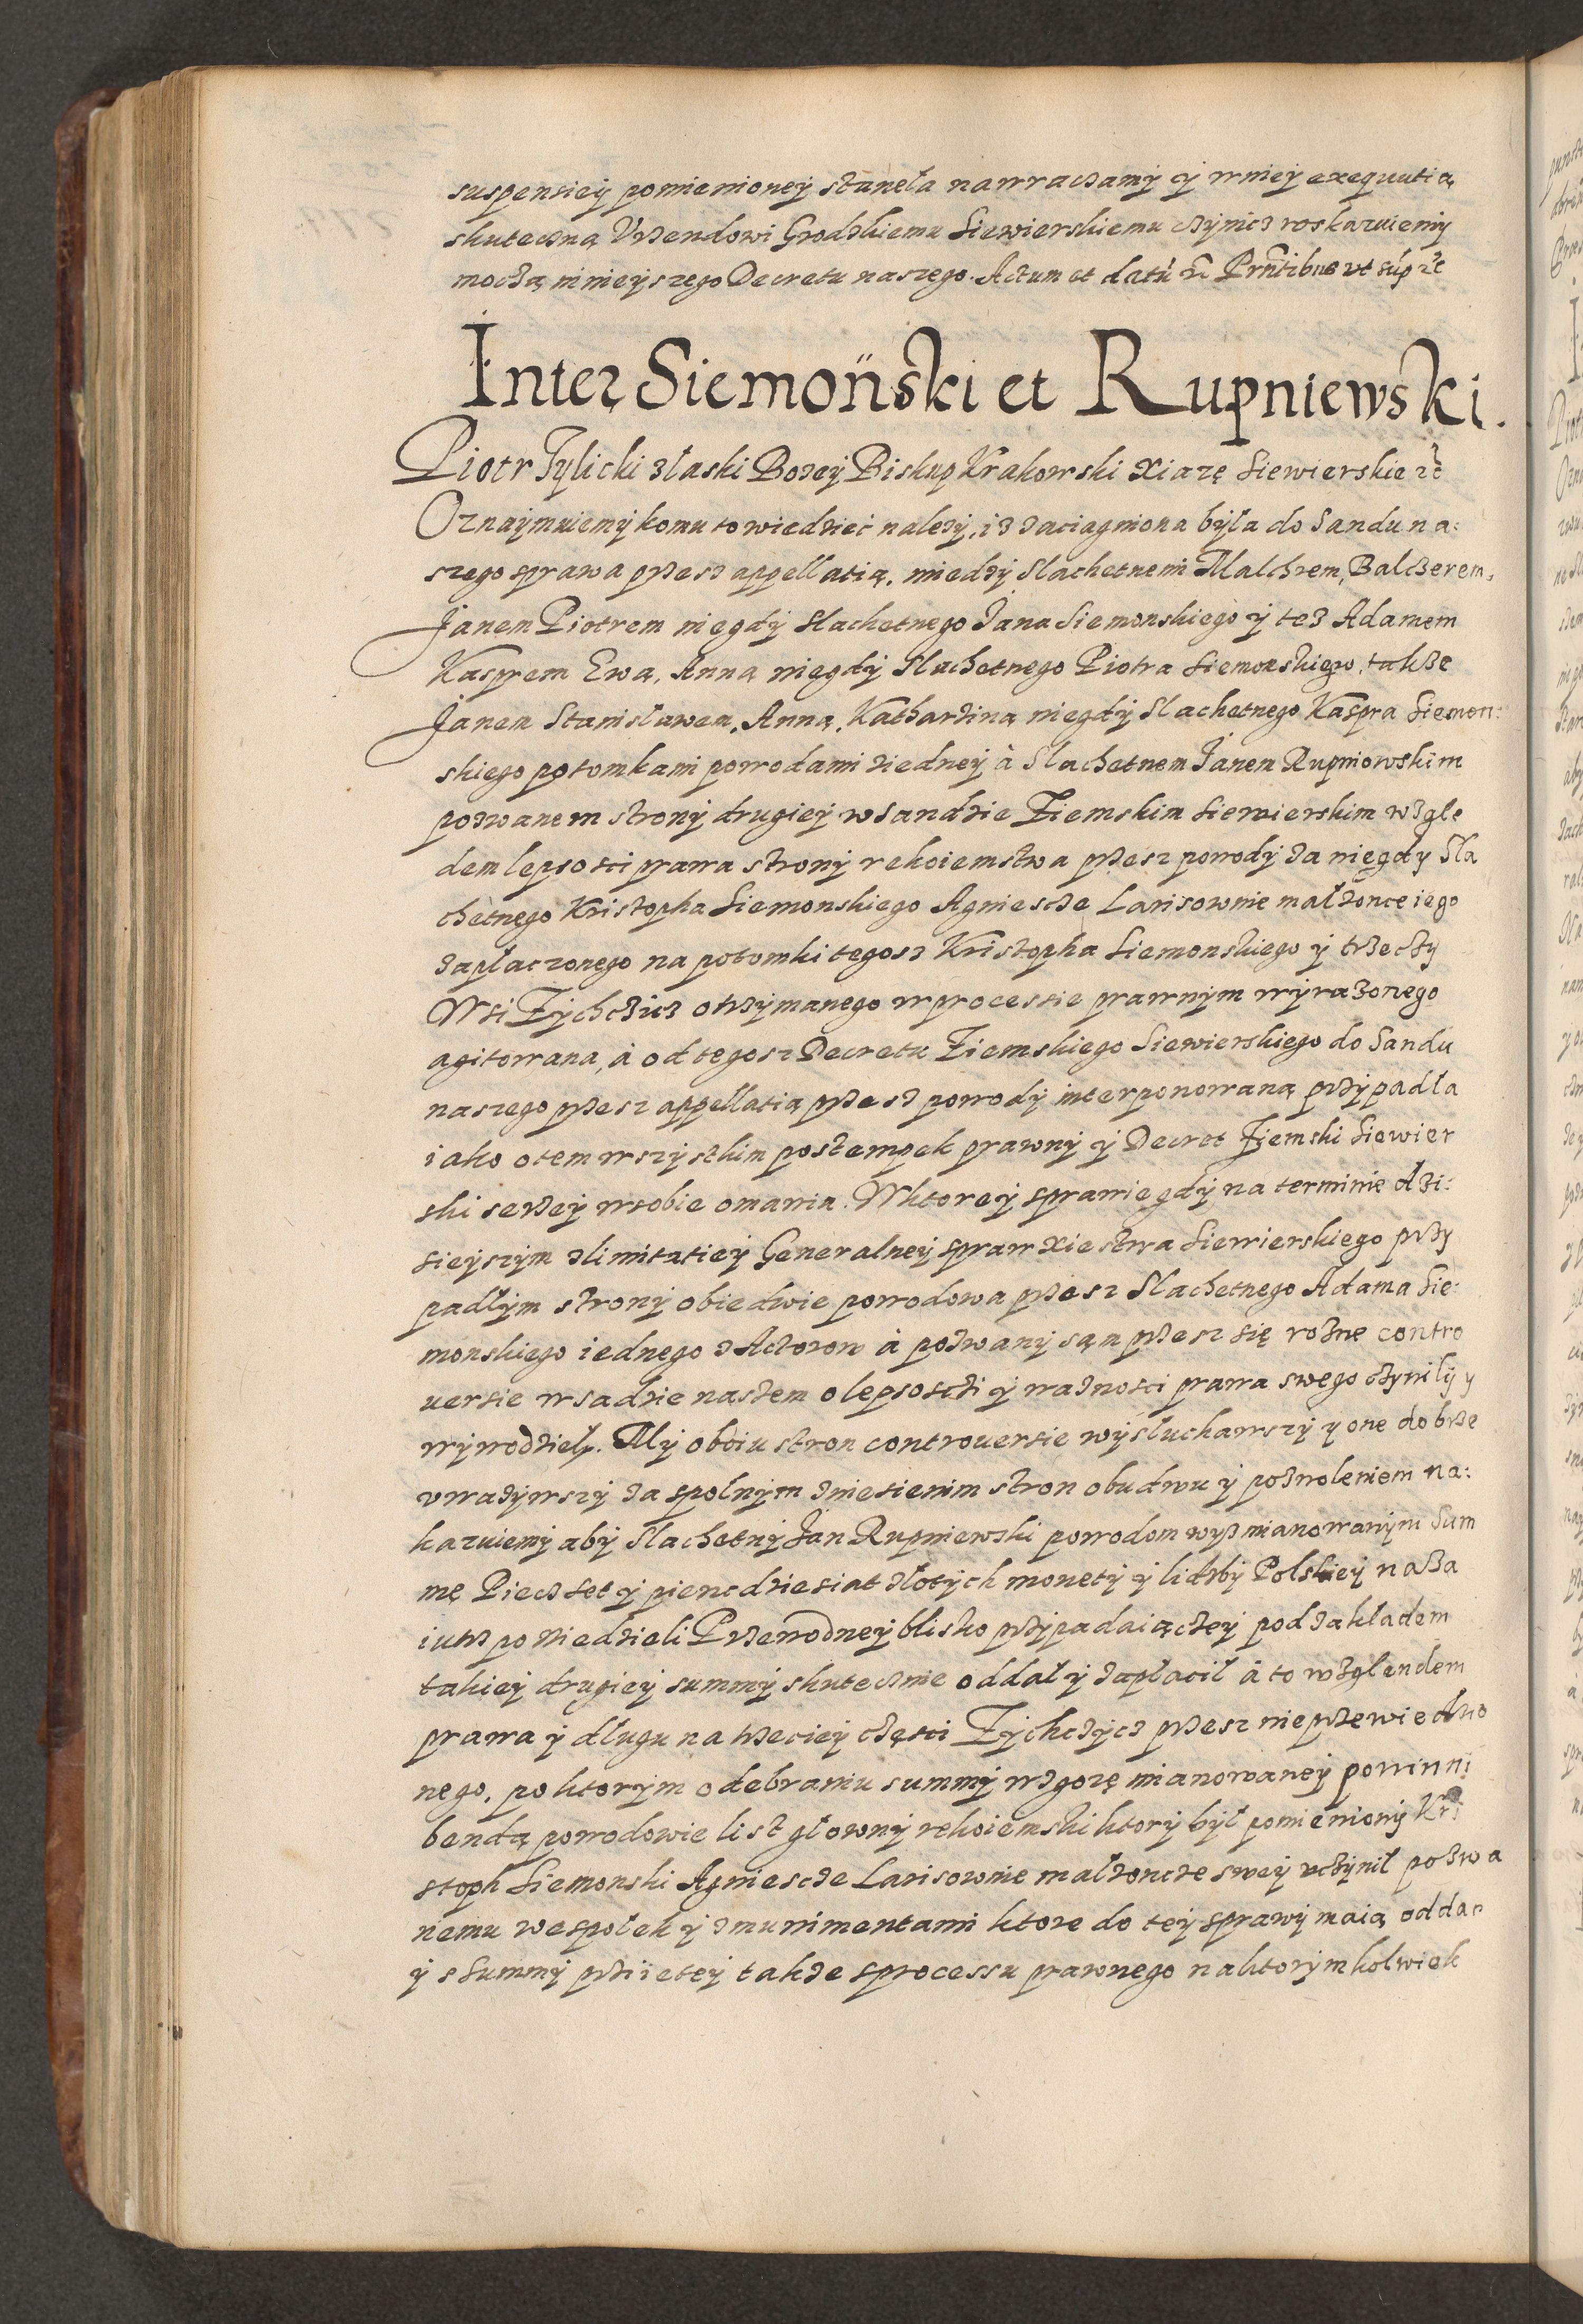 suspensiey pomienioney stanęła nawraczamy y wniey exequutią
skuteczną Vrzendowi Grodzkiemu Siewierskiemu czynicz roskazuiemy
moczą ninieyszego Decretu naszego. Actum et datū rc̃ Prñtibus ut sup̃ rc̃
Inter Siemoński et Rupniewski.
Piotr Tylicki złaski Bozey Biskup Krakowski Xiazę Siewierskie rc̃
Oznaymuiemy komu to wiedzieć nalezy, iz zaciagniona była do Sandu na:
szego sprawa przesz appellatią, miedzy Slachetnemi Malchrem, Balczerem,
Janem Piotrem niegdy Slachetnego Jana Siemonskiego y tez Adamem
Kasprem Ewą, Anną niegdy Slachetnego Piotra Siemonskiego, takze
Janem Stanisławem, Anną, Katharziną niegdy Slachetnego Kaspra Siemon:
skiego potomkami powodami ziedney à Slachetnem Janem Rupniowskim
pozwanem strony drugiey w Sandzie Ziemskim Siewierskim wzglę
dem lepsosci prawa strony rekoiemstwa przesz powody za niegdy Sla
chetnego Kristopha Siemonskiego Agniescze Larisownie małzonce iego
zapłaczonego na potomki tegosz Kristopha Siemonskiego y trzeczy
Wsi Zychczicz otrzymanego w processie prawnym wyrazonego
agitowana, à od tegosz Decretu Ziemskiego Siewierskiego do Sandu
naszego przesz appellatią przesz powody interponowaną przypadła
iako otem wszystkim postempek prawny y Decret Ziemski Siewier
ski serzey wsobie omawia. Wktorey sprawie gdy na terminie dzi:
sieyszym zlimitatiey Generalney spraw Xiestwa Siewierskiego przy
padłym strony obiedwie powodowa przesz Slachetnego Adama Sie:
monskiego iednego z Actorow à pozwany sąm przesz się rozne contro
uersie wsadzie naszem o lepsosczi y waznosci prawa swego czynily y
wywodziely. My oboiu stron controuersie wysłuchawszy y one dobrze
vwazywszy za spolnym zniesienim stron obudwu y pozwoleniem na:
kazuiemy aby Slachetny Jan Rupniewski powodom wyz mianowanym Sum
mę Pieczset y piencdziesiat złotych monety y liczby Polskiey naza
iutrz po Niedzieli Przewodney blisko przypadaiączey pod zakładem
takiey drugiey summy skutecznie oddał y zapłacił à to wzglendem
prawa y długu na trzeciey częsci Zychczycz przesz nieprzewiedzio
nego, po ktorym odebraniu summy wzgorę mianowaney powinni
bendą powodowie list głowny rekoiemski ktory był pomieniony Kri
stoph Siemonski Agniescze Larisownie malzoncze swey uczynił pozwa
nemu wespołek y zmunimentami ktore do tey sprawy maią oddac
y z Summy prziietey takze sprocessu prawnego naktorymkolwiek